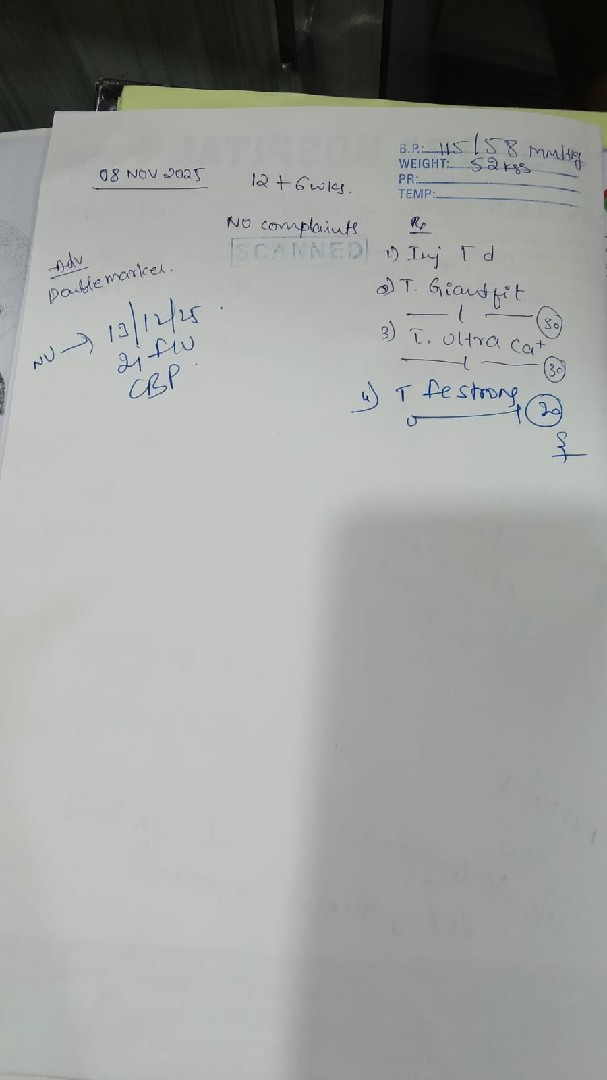 B.P.: 115/58 mm/Hg
WEIGHT: 52 kgs
PR:
TEMP:
08 NOV 2025
12 + 6 wks.
No complaints
SCANNED
Adv
Double marker.
NV → 13/12/25
CBP
Rx
1) Inj Td
2) T. Giantfit
30
3) T. Ultra Ca+
30
4) T Festrong